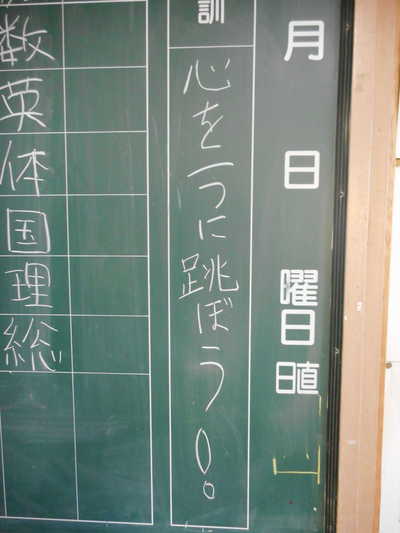 月 日 曜日 日直
訓
心を一つに跳ぼう!!
数
英
体
国
理
総